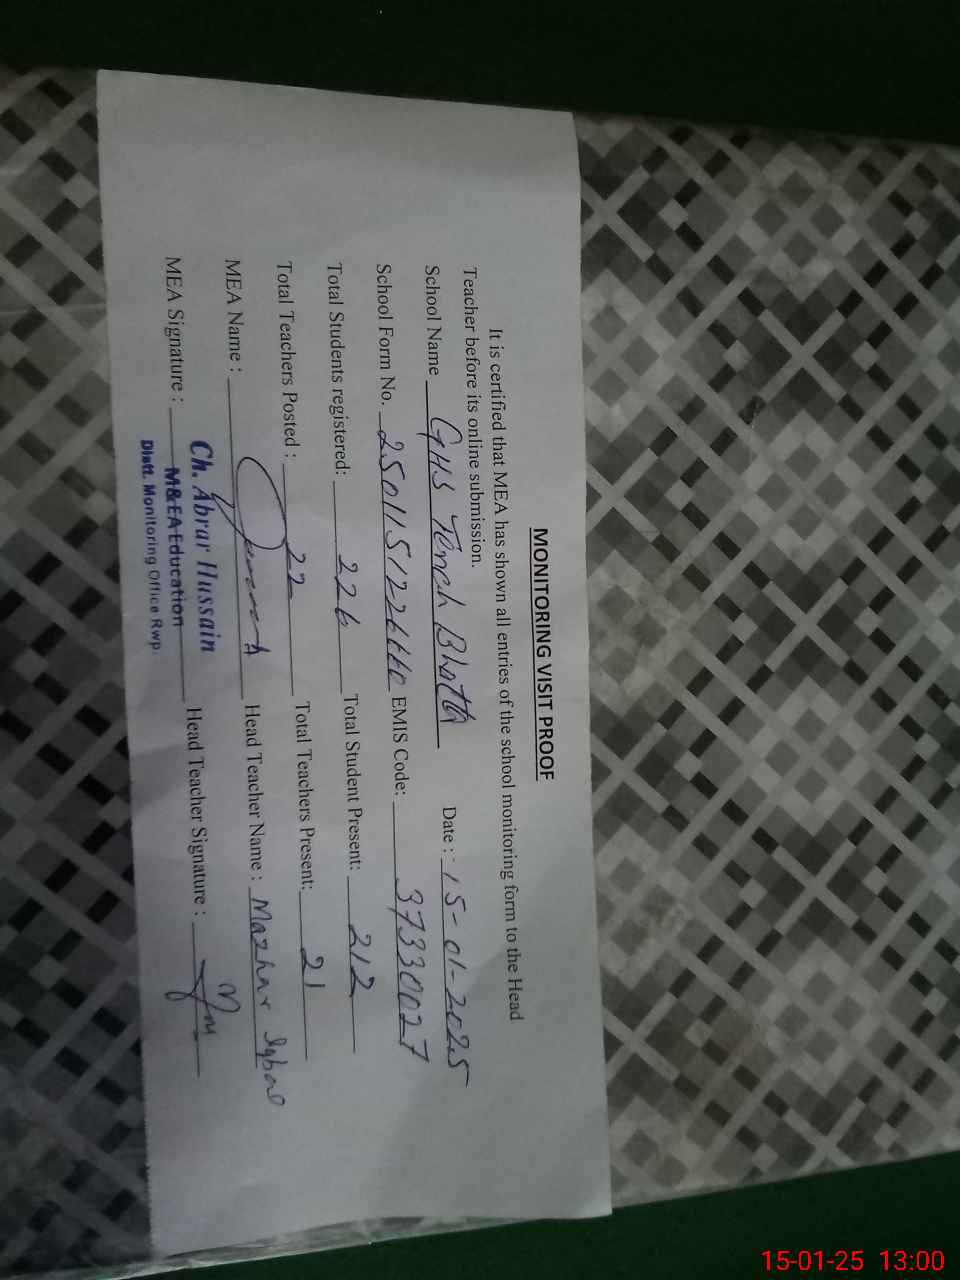 MONITORING VISIT PROOF
It is certified that MEA has shown all entries of the school monitoring form to the Head
Teacher before its online submission.
School Name GHS Tench Bhatta Date : 15-01-2025
School Form No. EMIS Code: 37330027
Total Students registered: 226 Total Student Present: 212
Total Teachers Posted : 22 Total Teachers Present: 21
MEA Name : Head Teacher Name : Mazhar Iqbal
Ch. Abrar Hussain
MEA Signature : M&EA Education Head Teacher Signature :
Distt. Monitoring Office Rwp.
15-01-25 13:00